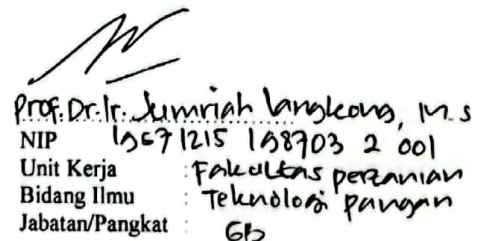 Prof. Dr. Ir. Jumriah Langkong, M.S
NIP 19571215 198703 2 001
Unit Kerja : Fakultas pertanian
Bidang Ilmu : Teknologi pangan
Jabatan/Pangkat : GB